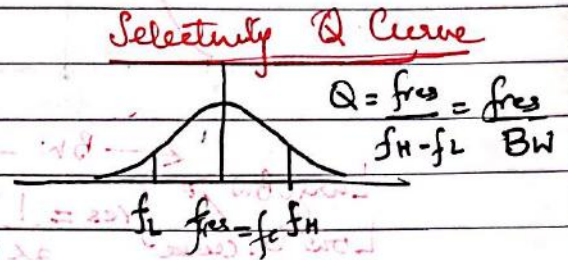 Selectivity Q Curve
Q = fres / fH-fL = fres / BW
fL fres=fc fH